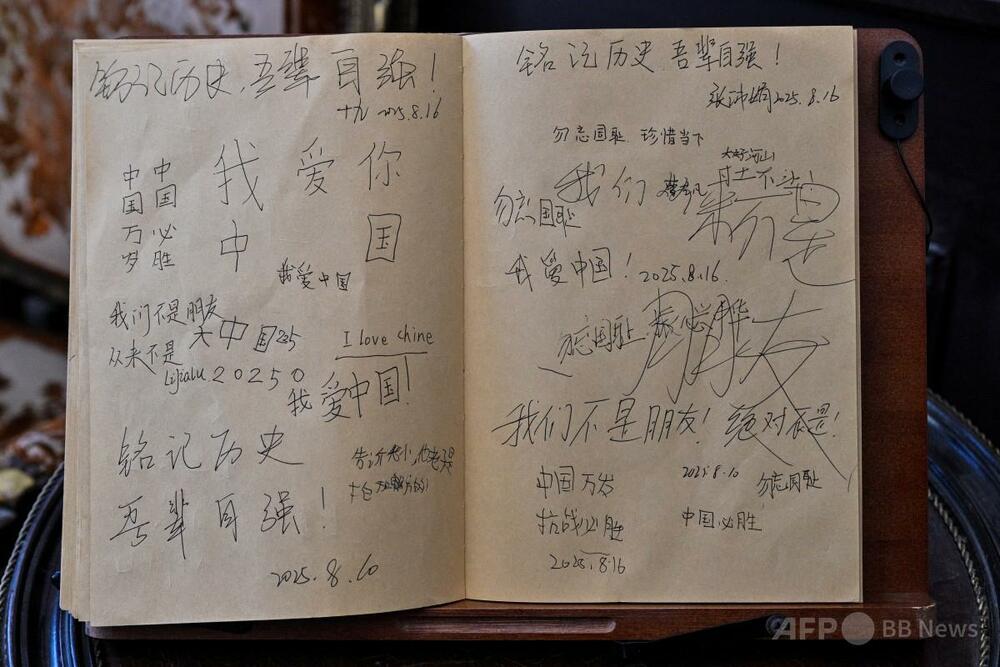 铭记历史,吾辈自强!
十九 2025.8.16
中国万岁
中国必胜
我爱你
中国
我爱中国
我们不是朋友
从来不是
大中国
I love chine
Lijialu 20250
我爱中国!
铭记历史
吾辈自强!
2025.8.10
铭记历史 吾辈自强!
2025.8.16
勿忘国耻 珍惜当下
大好河山
寸土不让!
我们
勿忘国耻
我爱中国! 2025.8.16
勿忘国耻
朋友
我们不是朋友! 绝对不是!
中国万岁
抗战必胜
2025.8.16
2025.8.10
勿忘国耻
中国必胜
AFP BB News